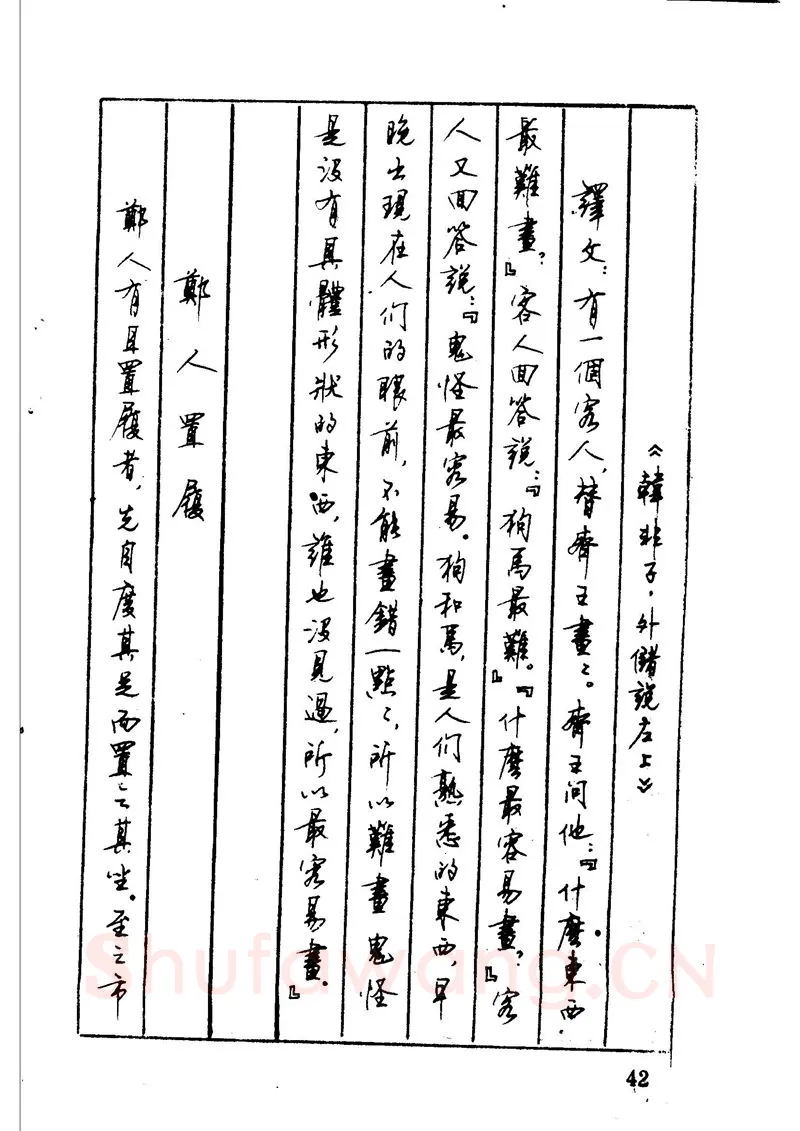 《韓非子·外儲說左上》
譯文：有一個客人，替齊王畫畫。齊王問他：『什麼東西
最難畫？』客人回答說：『狗馬最難。』『什麼最容易畫？』客
人又回答說：『鬼怪最容易。狗和馬，是人们熟悉的東西，早
晚出現在人们的眼前，不能畫錯一點點，所以難畫鬼怪
是沒有具體形狀的東西，誰也沒見過，所以最容易畫。』
鄭人置履
鄭人有且置履者，先自度其足而置之其坐。至之市
42
Shufawang.CN